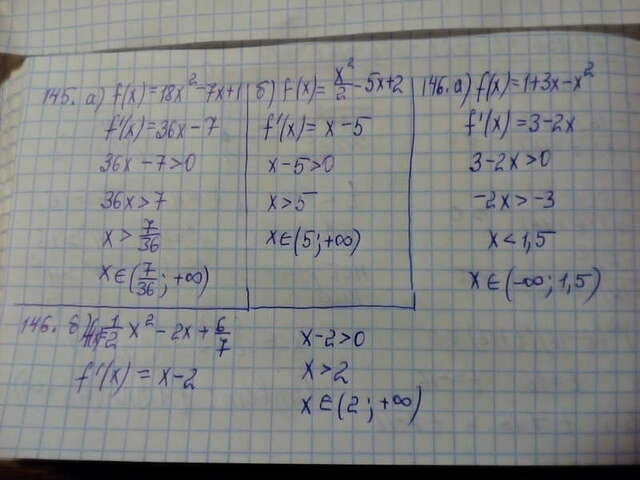 145. а) f(x)=18x²-7x+1
f'(x)=36x-7
36x-7>0
36x>7
x>7/36
x∈(7/36;+∞)
б) f(x)=x²/2-5x+2
f'(x)=x-5
x-5>0
x>5
x∈(5;+∞)
146. а) f(x)=1+3x-x²
f'(x)=3-2x
3-2x>0
-2x>-3
x<1,5
x∈(-∞;1,5)
146. б) 1/2 x²-2x+6/7
f'(x)=x-2
x-2>0
x>2
x∈(2;+∞)